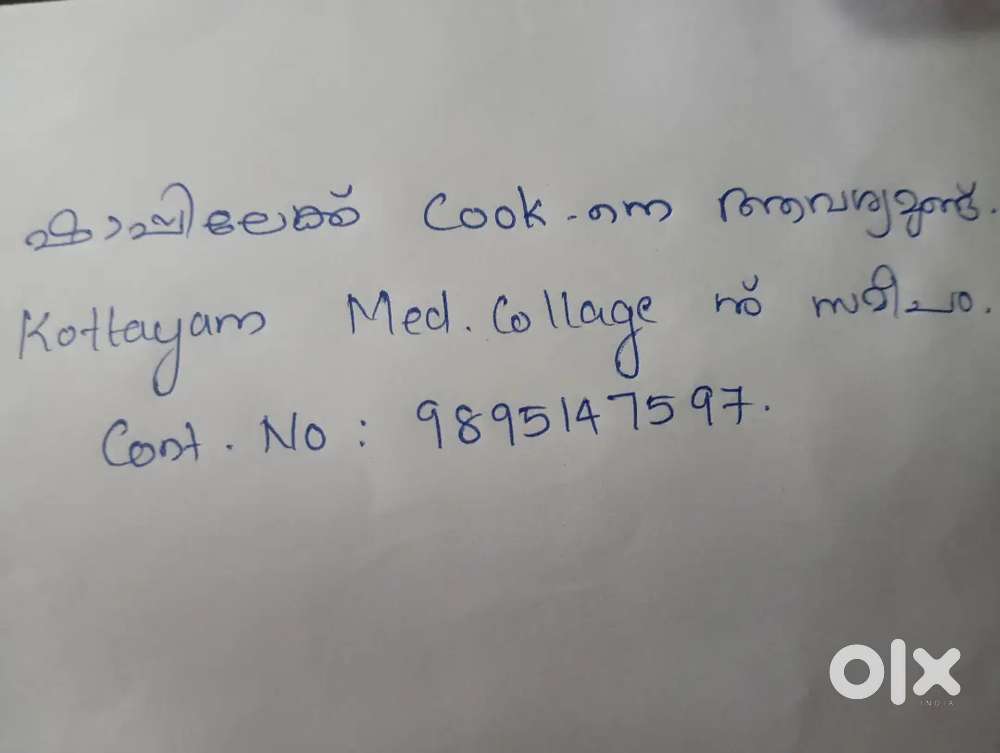 ഷാപ്പിലേക്ക് Cook-നെ ആവശ്യമുണ്ട്.
Kottayam Med. Collage ന് സമീപം.
Cont. No : 9895147597.
olx
INDIA